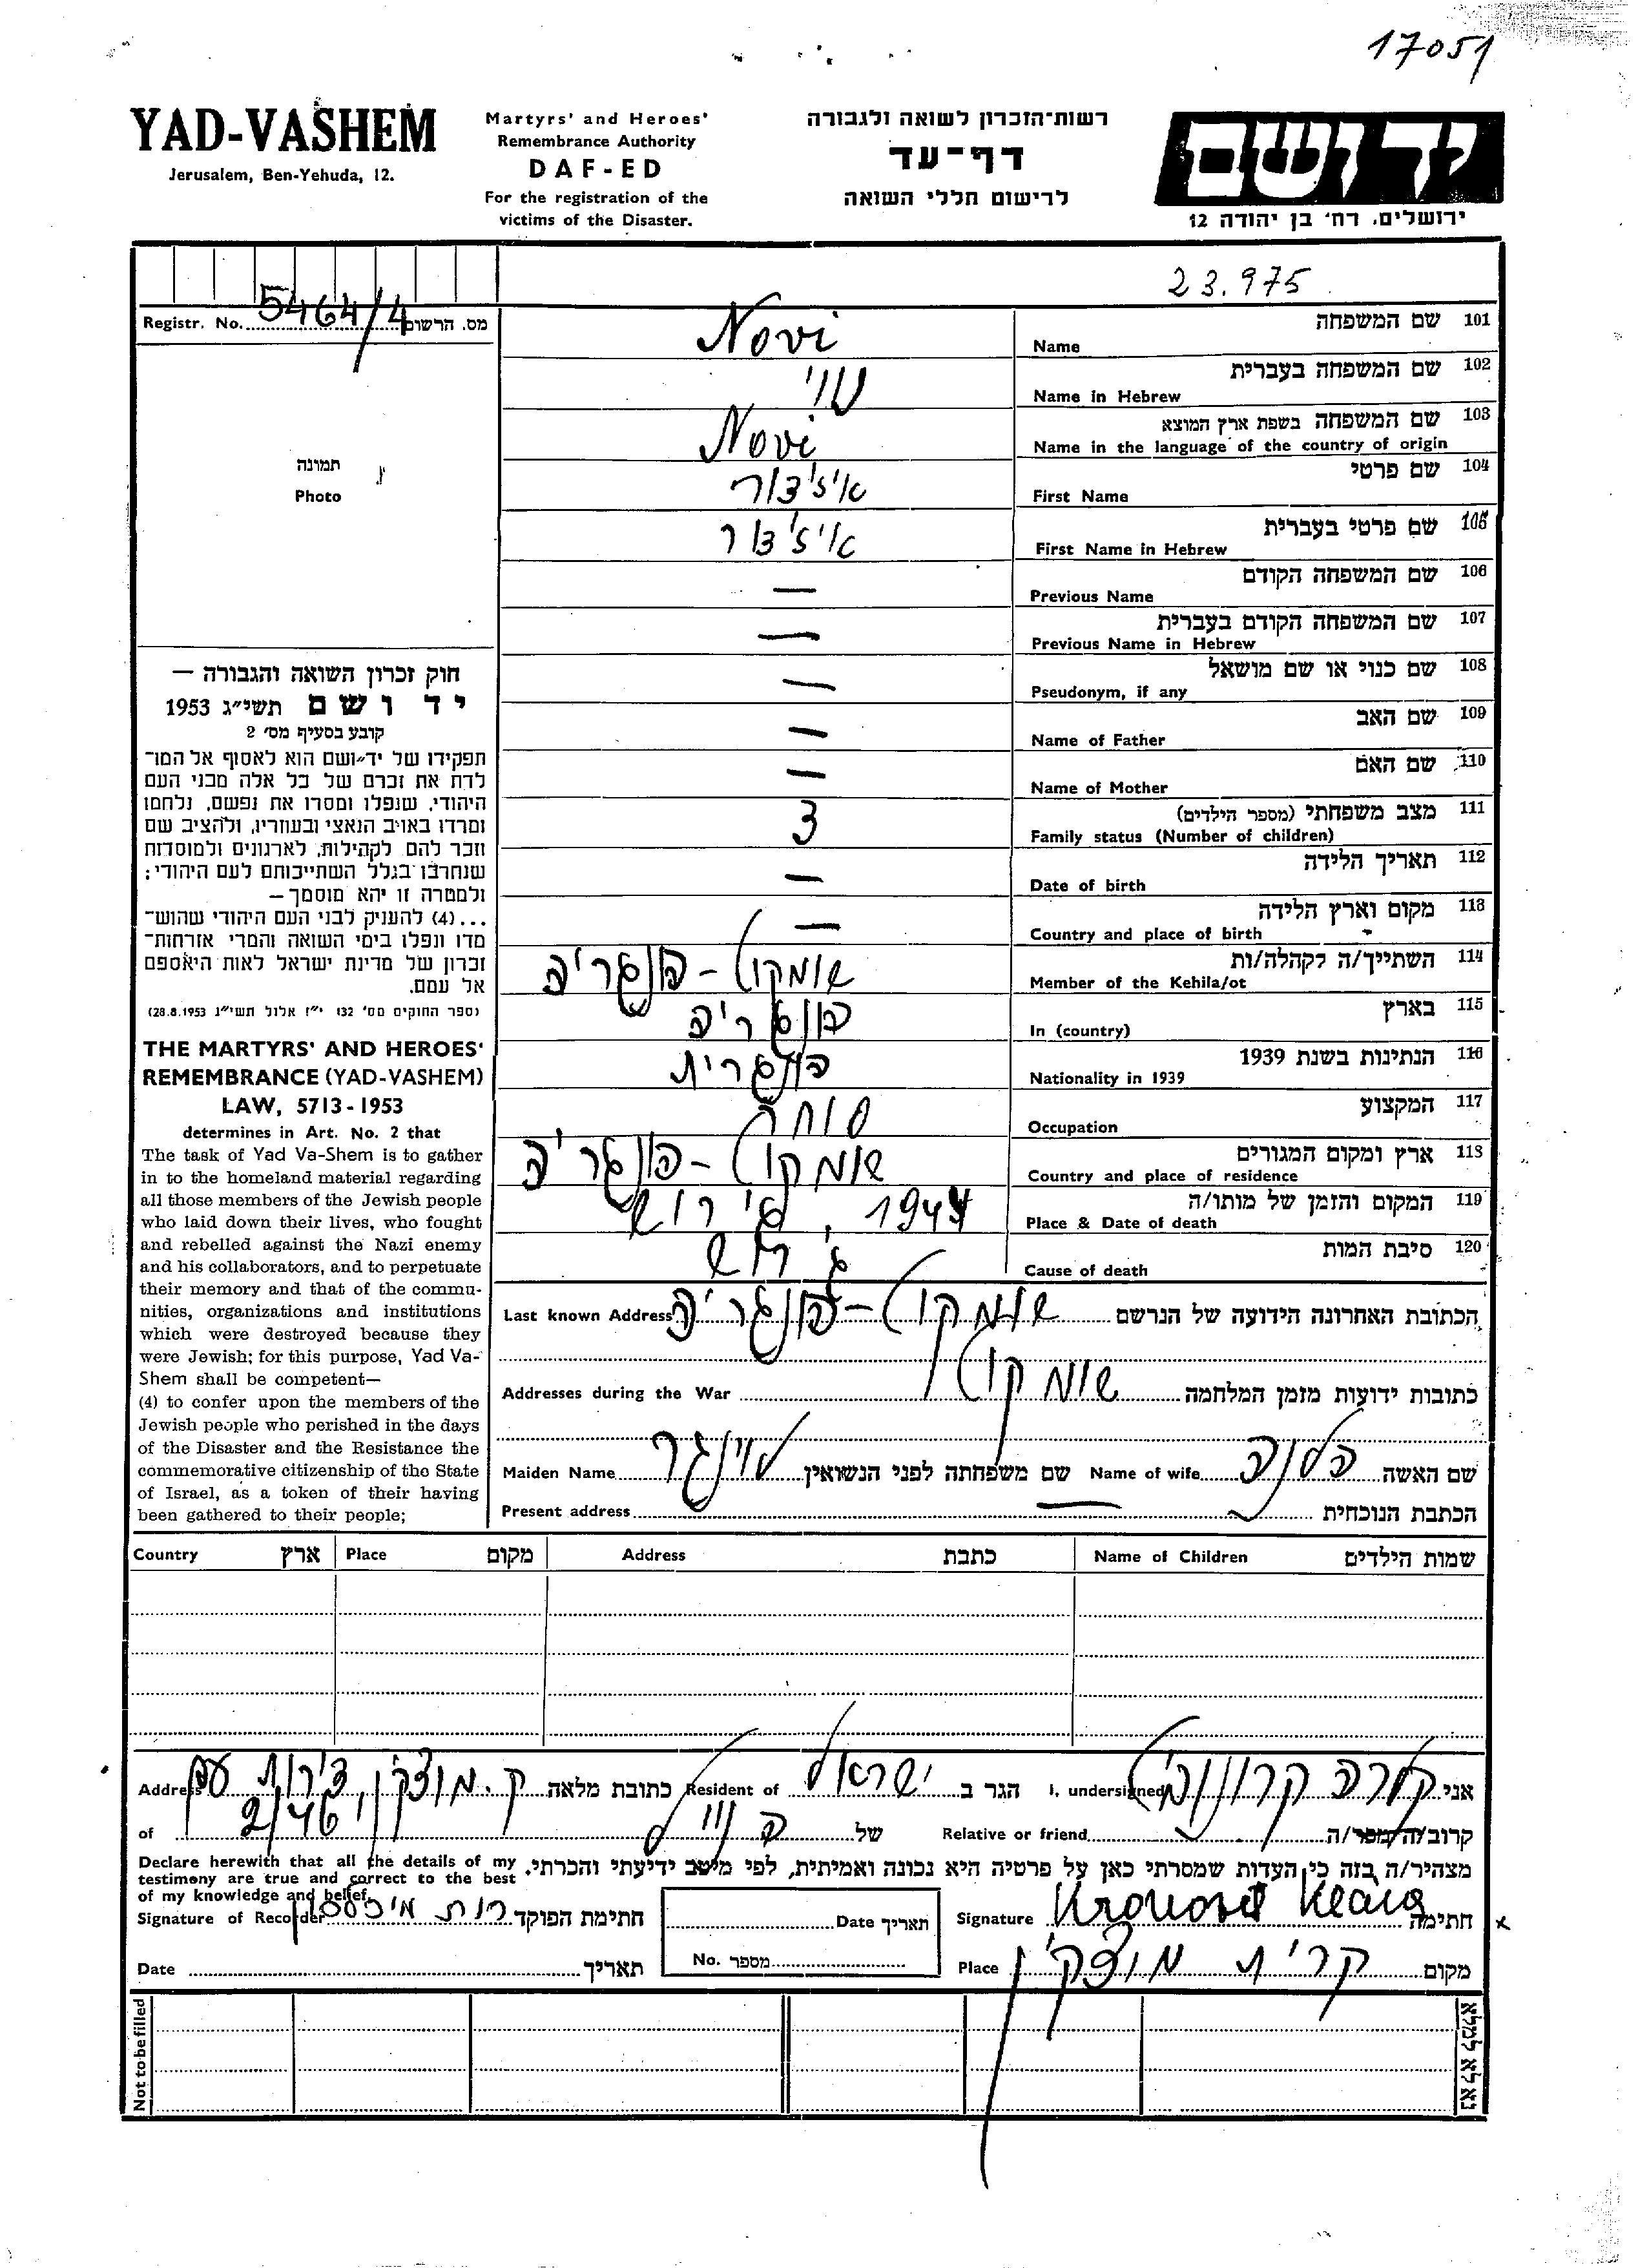 17051
YAD-VASHEM
Jerusalem, Ben-Yehuda, 12.
Martyrs' and Heroes'
Remembrance Authority
DAF-ED
For the registration of the
victims of the Disaster.
רשות־הזכרון לשואה ולגבורה
דף-עד
לרישום חללי השואה
יד ושם
ירושלים, רח' בן יהודה 12
23.975
Registr. No. 5464/4 מס. הרשום
תמונה
Photo
101 שם המשפחה Name Novi
102 שם המשפחה בעברית Name in Hebrew
103 שם המשפחה בשפת ארץ המוצא Name in the language of the country of origin Novi
104 שם פרטי First Name איזידור
105 שם פרטי בעברית First Name in Hebrew איזידור
106 שם המשפחה הקודם Previous Name —
107 שם המשפחה הקודם בעברית Previous Name in Hebrew —
108 שם כנוי או שם מושאל Pseudonym, if any —
109 שם האב Name of Father —
110 שם האם Name of Mother —
111 מצב משפחתי (מספר הילדים) Family status (Number of children) 3
112 תאריך הלידה Date of birth —
113 מקום וארץ הלידה Country and place of birth —
114 השתייך/ה לקהלה/ות Member of the Kehila/ot הונגריה
115 בארץ In (country) הונגריה
116 הנתינות בשנת 1939 Nationality in 1939 הונגרית
117 המקצוע Occupation סוחר
118 ארץ ומקום המגורים Country and place of residence הונגריה
119 המקום והזמן של מותו/ה Place & Date of death 1944, גירוש
120 סיבת המות Cause of death גירוש
חוק זכרון השואה והגבורה —
יד ושם תשי״ג 1953
קובע בסעיף מס' 2
תפקידו של יד־ושם הוא לאסוף אל המו־
לדת את זכרם של כל אלה מבני העם
היהודי, שנפלו ומסרו את נפשם, נלחמו
ומרדו באויב הנאצי ובעוזריו, ולהציב שם
וזכר להם לקהילות, לארגונים ולמוסדות
שנחרבו בגלל השתייכותם לעם היהודי;
ולמטרה זו יהא מוסמך—
...(4) להעניק לבני העם היהודי שהוש־
מדו ונפלו בימי השואה והמרי אזרחות־
זכרון של מדינת ישראל לאות היאספם
אל עמם.
(ספר החוקים מס' 132 י״ז אלול תשי״ג 28.8.1953)
THE MARTYRS' AND HEROES'
REMEMBRANCE (YAD-VASHEM)
LAW, 5713-1953
determines in Art. No. 2 that
The task of Yad Va-Shem is to gather
in to the homeland material regarding
all those members of the Jewish people
who laid down their lives, who fought
and rebelled against the Nazi enemy
and his collaborators, and to perpetuate
their memory and that of the commu-
nities, organizations and institutions
which were destroyed because they
were Jewish; for this purpose, Yad Va-
Shem shall be competent—
(4) to confer upon the members of the
Jewish people who perished in the days
of the Disaster and the Resistance the
commemorative citizenship of the State
of Israel, as a token of their having
been gathered to their people;
הכתובת האחרונה הידועה של הנרשם הונגריה Last known Address
כתובות ידועות מזמן המלחמה Addresses during the War
שם האשה הלנה Name of wife שם משפחתה לפני הנשואין Maiden Name
הכתבת הנוכחית — Present address
שמות הילדים Name of Children כתבת Address מקום Place ארץ Country
אני קלרה I, undersigned הגר ב ישראל Resident of כתובת מלאה ק. מוצקין, Address
קרוב/ה/מכר/ה Relative or friend של of 2/46
מצהיר/ה בזה כי העדות שמסרתי כאן על פרטיה היא נכונה ואמיתית, לפי מיטב ידיעתי והכרתי.
Declare herewith that all the details of my
testimony are true and correct to the best
of my knowledge and belief.
חתימה Signature תאריך Date חתימת הפוקד רות Signature of Recorder
מקום קרית מוצקין Place מספר No. תאריך Date
Not to be filled
נא לא למלא